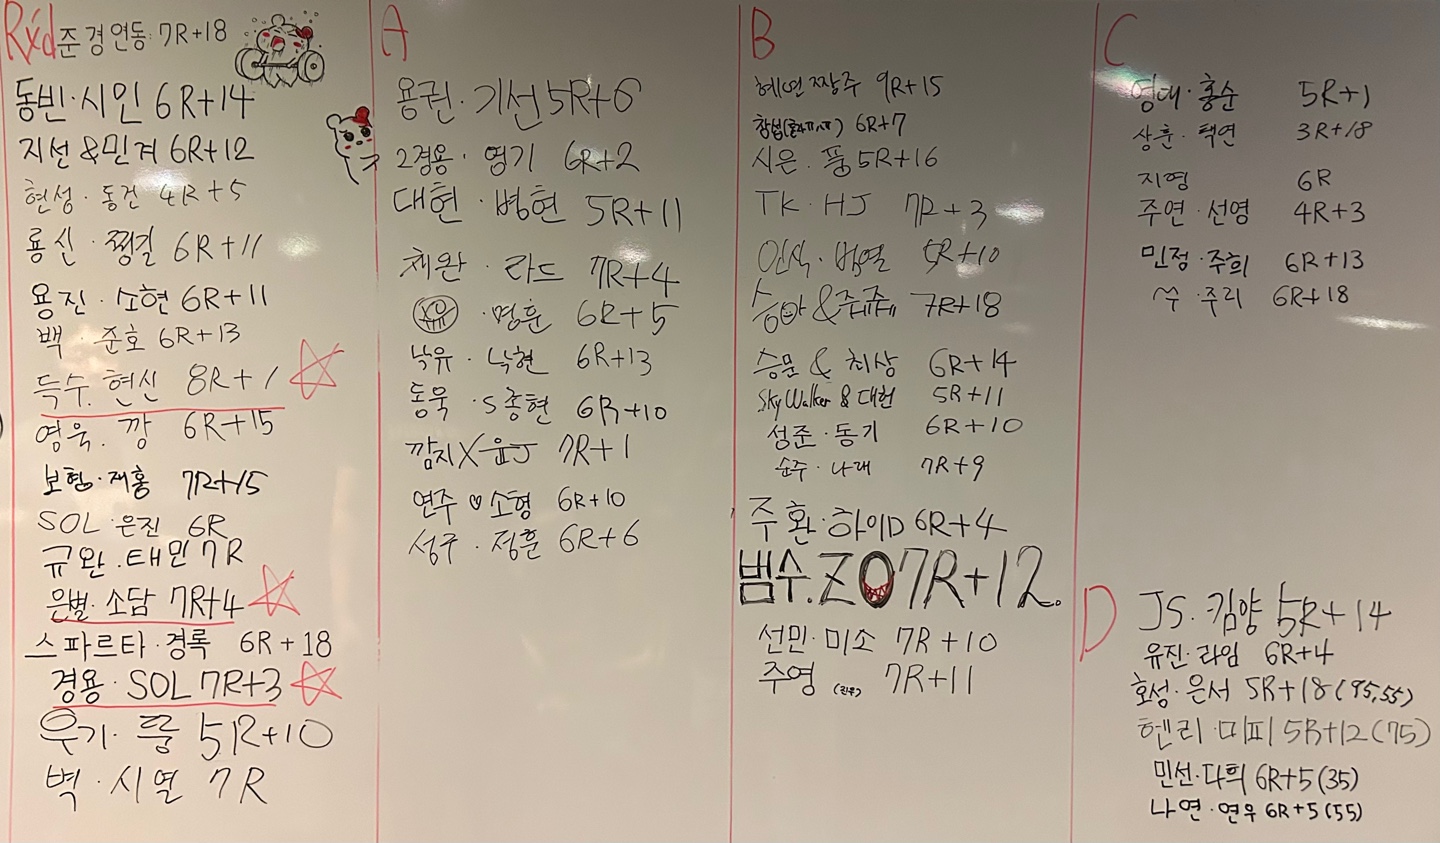 Rxd
준경 연동 7R+18
동빈·시인 6R+14
지선&민계 6R+12
현성·동건 4R+5
룡신·찡길 6R+11
용진·소현 6R+11
백·준호 6R+13
득수·현신 8R+1
영욱·깡 6R+15
보험·재홍 7R+15
SOL·은진 6R
규완·태민 7R
은별·소담 7R+4
스파르타·경록 6R+18
경용·SOL 7R+3
우기·룽 5R+10
벽·시열 7R
A
용권·기선 5R+6
2경용·영기 6R+2
대현·병현 5R+11
채완·라드 7R+4
·명훈 6R+5
낙유·낙현 6R+13
동욱·S종현 6R+10
깜지X윤J 7R+1
연주♡소형 6R+10
성주·정훈 6R+6
B
혜연 짱주 9R+15
창섭 6R+7
시은·풍 5R+16
TK·HJ 7R+3
인식·범열 5R+10
승아& 7R+18
승문 & 최상 6R+14
Sky Walker & 대현 5R+11
성준·동기 6R+10
순주·나래 7R+9
주환·하이D 6R+4
범수.ZO 7R+12.
선민·미소 7R+10
주영 7R+11
C
영대·홍순 5R+1
상훈·택연 3R+18
지영 6R
주연·선영 4R+3
민정·주희 6R+13
쑤·주리 6R+18
D
JS·킴양 5R+14
유진·라임 6R+4
호성·은서 5R+18(95,55)
헨리·미피 5R+12(75)
민선·다희 6R+5(35)
나연·연우 6R+5(55)